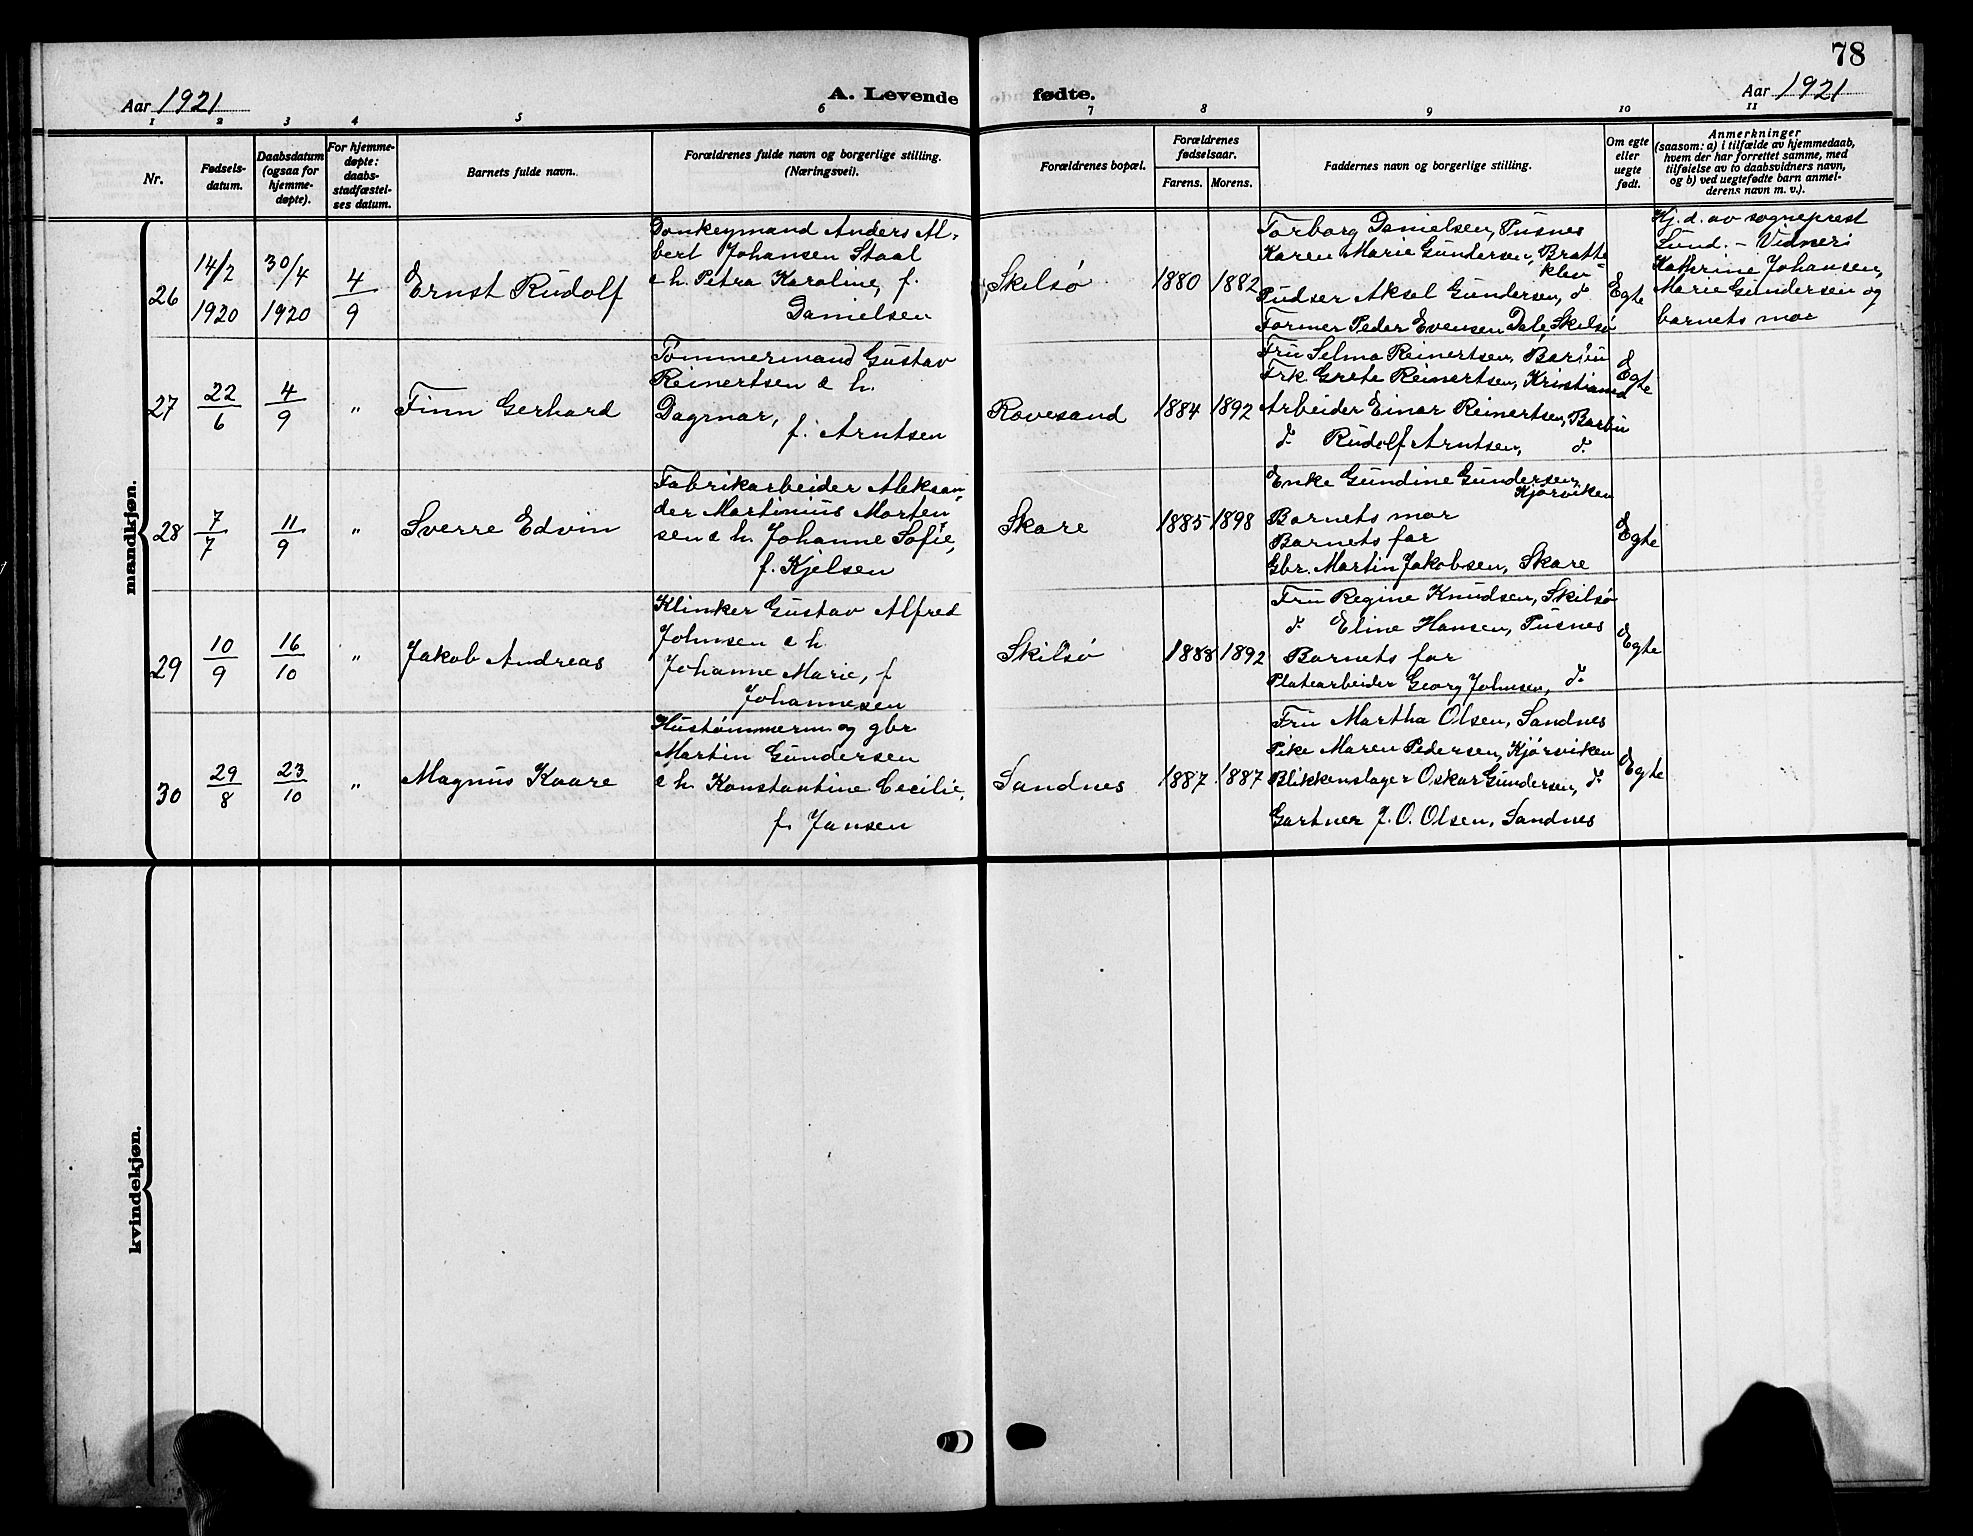 78
Aar 1921 A. Levende fødte. Aar 1921
1 2 3 4 5 6 7 8 9 10 11
Nr.
Fødsels-
datum.
Daabsdatum
(ogsaa for
hjemme-
døpte).
For hjemme-
døpte:
daabs-
stadfæstel-
ses datum.
Barnets fulde navn.
Forældrenes fulde navn og borgerlige stilling.
(Næringsvei).
Forældrenes bopæl.
Forældrenes
fødselsaar.
Farens. Morens.
Faddernes navn og borgerlige stilling.
Om egte
eller
uegte
født.
Anmerkninger
(saasom: a) i tilfælde av hjemmedaab,
hvem der har forrettet samme, med
tilføielse av to daabsvidners navn,
og b) ved uegtefødte barn anmel-
derens navn m. v.).
mandkjøn.
26
14/2
1920
30/4
1920
4/9
Ernst Rudolf
Donkeymand Anders Al-
bert Johansen Staal
& h. Petra Karoline, f.
Danielsen
Skilsø
1880 1882
Torborg Danielsen, Pusnes
Karen Marie Gundersen, Bratte-
klev
Pudser Aksel Gundersen, d.
Former Peder Evensen Dale, Skilsø
Egte
Hj. d. av sogneprest
Lund. - Vidner:
Kathrine Johansen,
Marie Gundersen og
barnets mor
27
22/6
4/9
"
Finn Gerhard
Tømmermand Gustav
Reinertsen & h.
Dagmar,
f. Arntsen
Rovesand
1884 1892
Fru Selma Reinertsen, Barbu
Frk. Grete Reinertsen, Kristiansd
Arbeider Einar Reinertsen, Barbu
d. Rudolf Arntsen, d.
Egte
28
7/7
11/9
"
Sverre Edvin
Fabrikarbeider Aleksan-
der Martinius Morten-
sen & h. Johanne Sofie,
f. Kjelsen
Skare
1885 1898
Enke Gundine Gundersen,
Kjørviken
Barnets mor
Barnets far
Gbr. Martin Jakobsen, Skare
Egte
29
10/9
16/10
"
Jakob Andreas
Klinker Gustav Alfred
Johnsen & h.
Johanne Marie, f
Johannesen
Skilsø
1888 1892
Fru Regine Knudsen, Skilsø
d. Eline Hansen, Pusnes
Barnets far
Platearbeider Georg Johnsen, d.
Egte
30
29/8
23/10
"
Magnus Kaare
Hustømmerm og gbr
Martin Gundersen
& h. Konstantine Cecilie,
f. Jansen
Sandnes
1887 1887
Fru Martha Olsen, Sandnes
Pike Maren Pedersen, Kjørviken
Blikkenslager Oskar Gundersen, d.
Gartner J. O. Olsen, Sandnes
Egte
kvindekjøn.